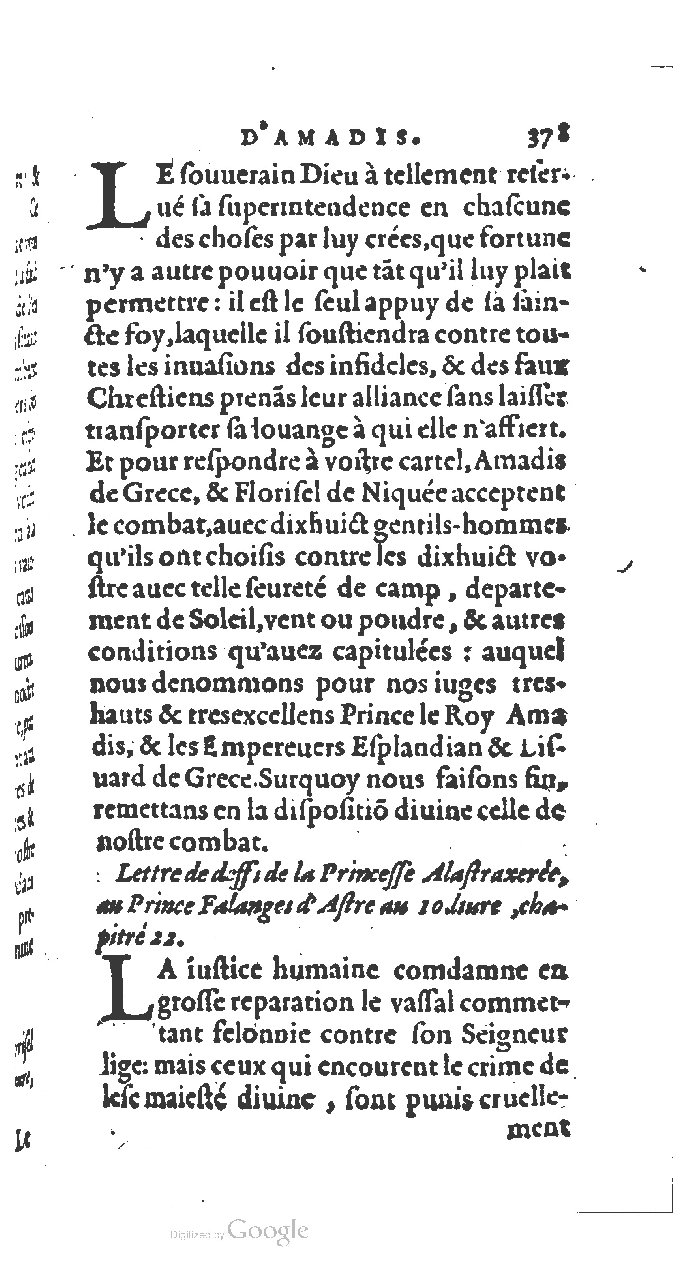 D'AMADIS. 378
LE ſouuerain Dieu à tellement reſer-
ué ſà ſuperintendence en chaſcune
des choſes par luy crées, que fortune
n'y a autre pouuoir que tāt qu'il luy plait
permettre : il eſt le ſeul appuy de ſà ſain-
cte foy, laquelle il ſouſtiendra contre tou-
tes les inuaſions des infideles, & des faux
Chreſtiens prenās leur alliance ſans laiſſer
tranſporter ſa louange à qui elle n'affiert.
Et pour reſpondre à voſtre cartel, Amadis
de Grece, & Floriſel de Niquée acceptent
le combat, auec dixhuict gentils-hommes
qu'ils ont choiſis contre les dixhuict vo-
ſtre auec telle ſeureté de camp, departe-
ment de Soleil, vent ou poudre, & autres
conditions qu'auez capitulées : auquel
nous denommons pour nos iuges tres-
hauts & tresexcellens Prince le Roy Ama
dis, & les Empereuers Eſplandian & Liſ-
uard de Grece. Surquoy nous faiſons fin,
remettans en la diſpoſitiō diuine celle de
noſtre combat.
Lettre de deffi de la Princeſſe Alaſtraxerée,
au Prince Falanges d'Aſtre au 10 liure, cha-
pitré 22.
LA iuſtice humaine comdamne en
groſſe reparation le vaſſal commet-
tant felonnie contre ſon Seigneur
lige: mais ceux qui encourent le crime de
leſe maieſté diuine, ſont punis cruelle-
ment
Le
Digitized by Google